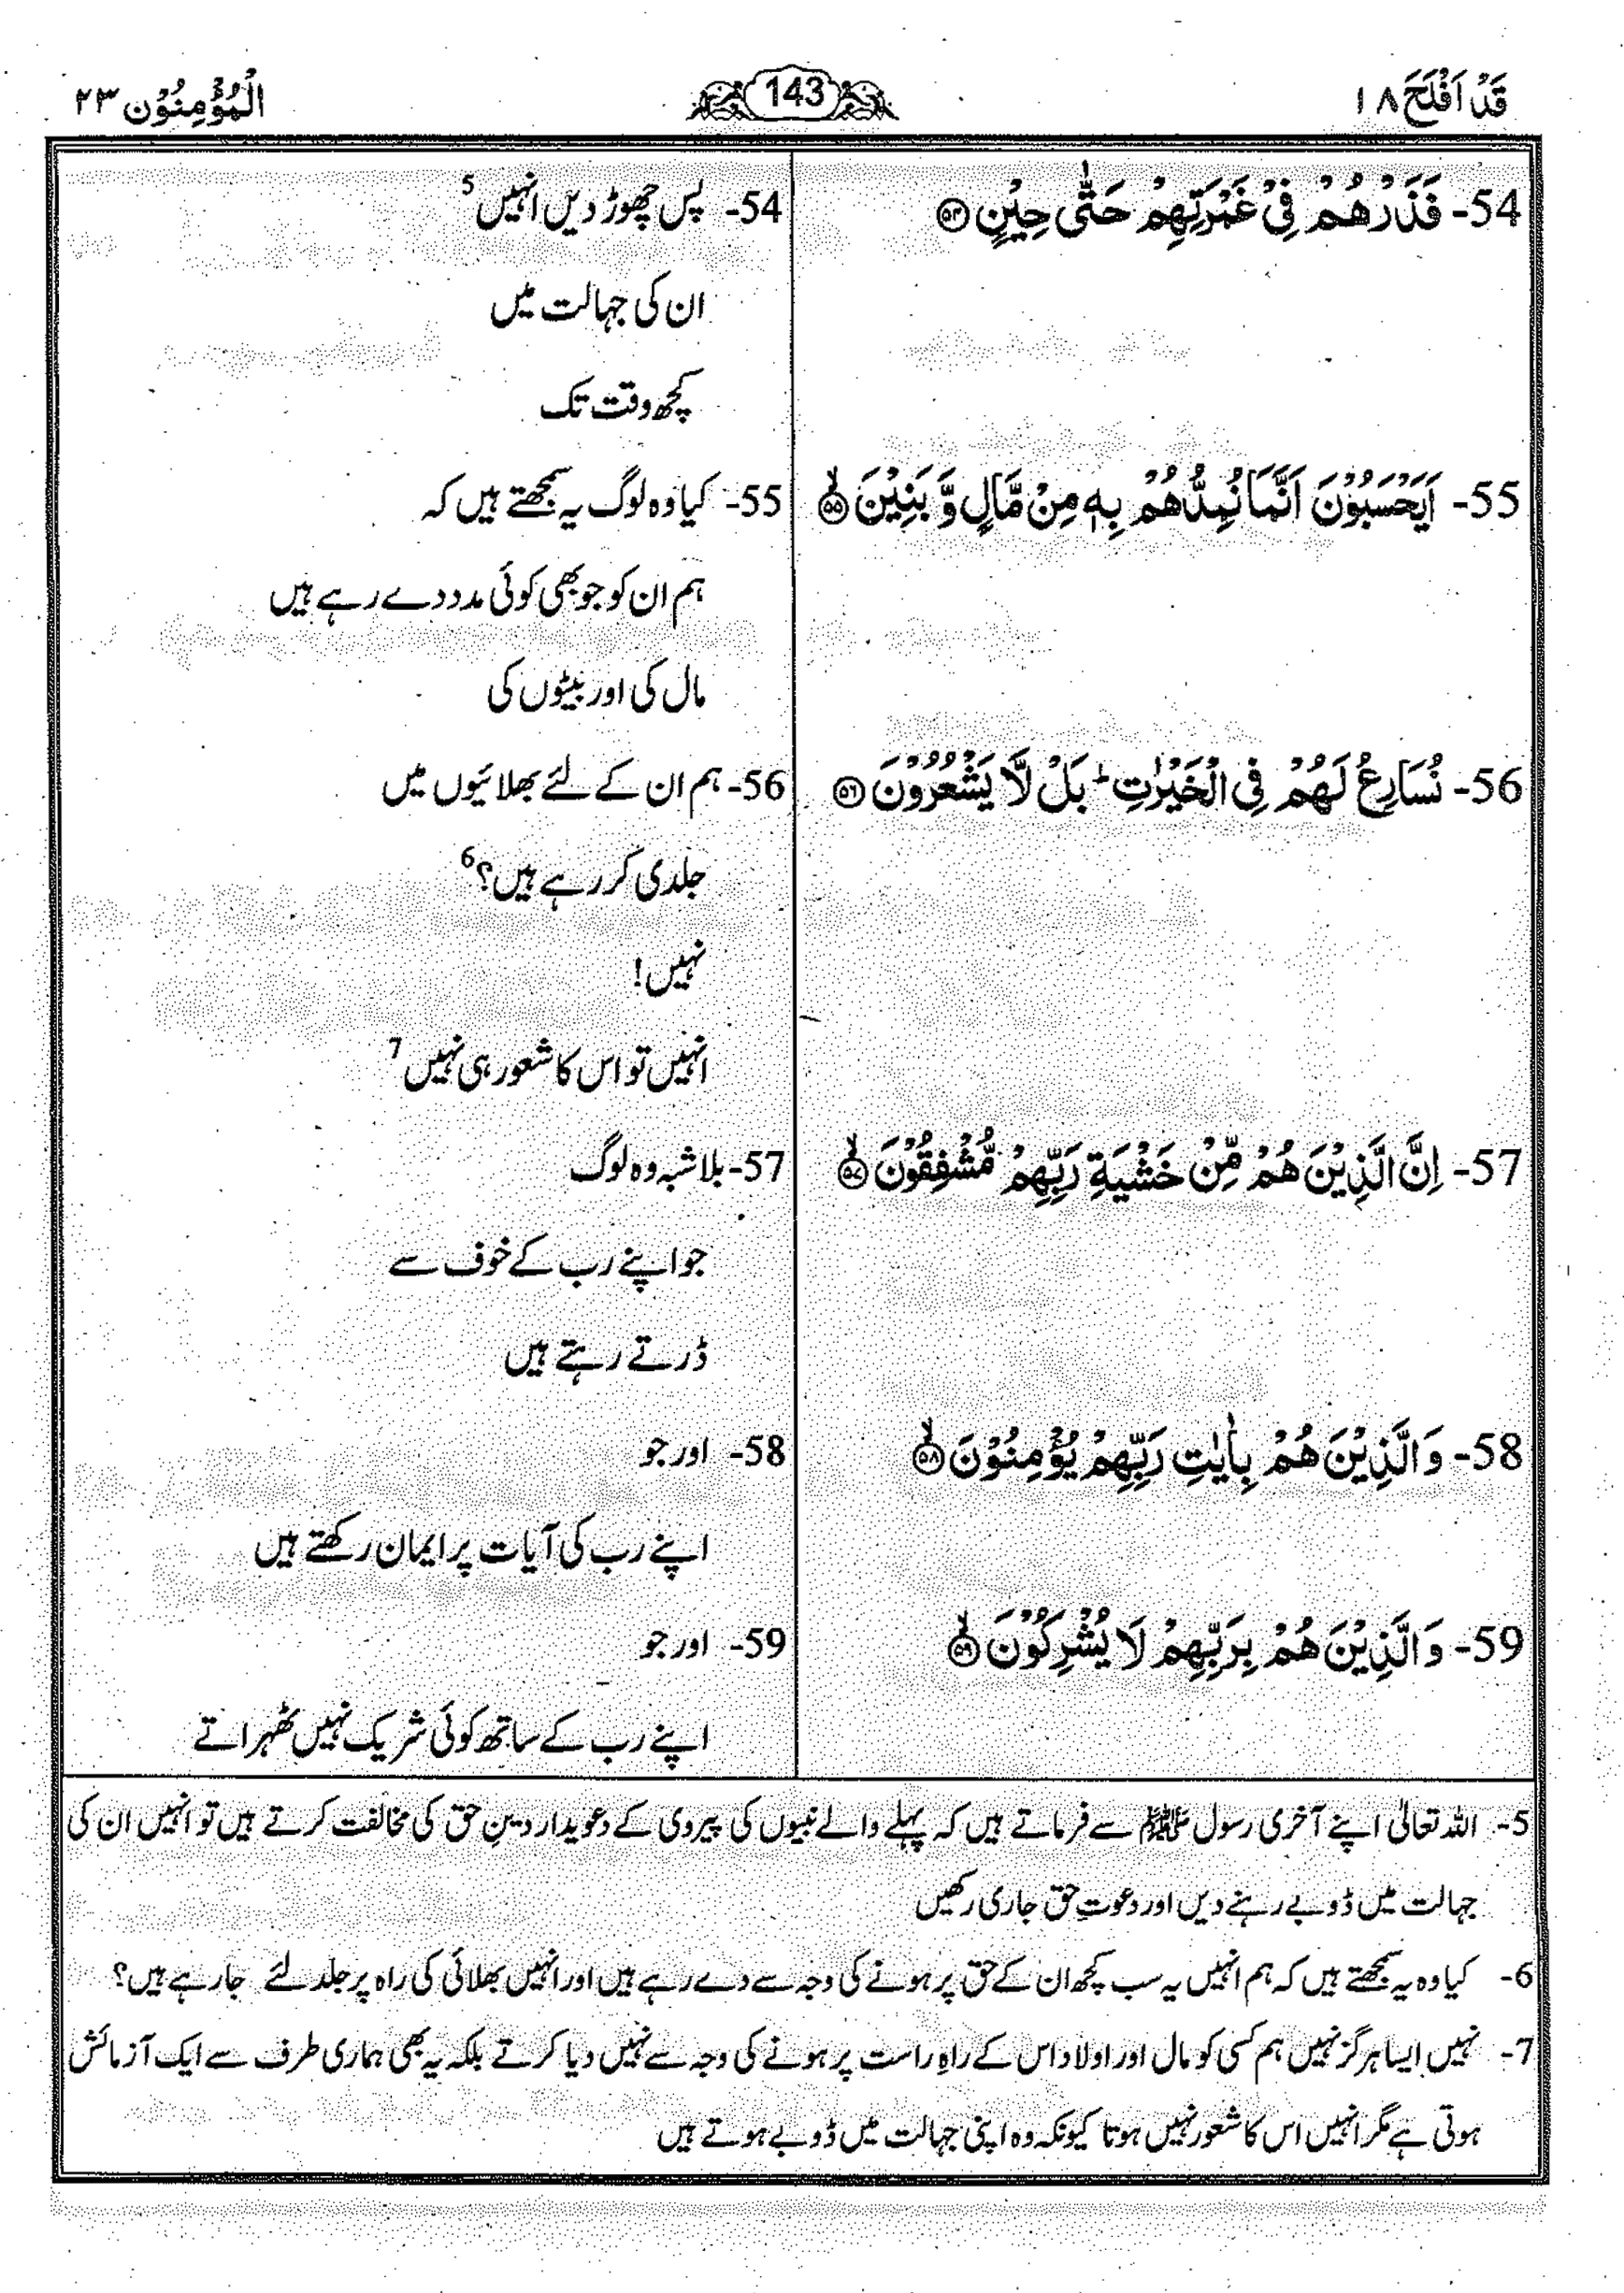 قَدْ اَفْلَحَ ١٨
143
الْمُؤْمِنُوْن ٢٣
54- فَذَرْهُمْ فِیْ غَمْرَتِهِمْ حَتّٰى حِیْنٍ ﴿۵۴﴾
54- پس چھوڑ دیں انہیں 5
ان کی جہالت میں
کچھ وقت تک
55- اَیَحْسَبُوْنَ اَنَّمَا نُمِدُّهُمْ بِهٖ مِنْ مَّالٍ وَّ بَنِیْنَ ﴿۵۵﴾ۙ
55- کیا وہ لوگ یہ سمجھتے ہیں کہ
ہم ان کو جو بھی کوئی مدد دے رہے ہیں
مال کی اور بیٹوں کی
56- نُسَارِعُ لَهُمْ فِی الْخَیْرٰتِ ؕ بَلْ لَّا یَشْعُرُوْنَ ﴿۵۶﴾
56- ہم ان کے لئے بھلائیوں میں
جلدی کر رہے ہیں؟ 6
نہیں!
انہیں تو اس کا شعور ہی نہیں 7
57- اِنَّ الَّذِیْنَ هُمْ مِّنْ خَشْیَةِ رَبِّهِمْ مُّشْفِقُوْنَ ﴿۵۷﴾ۙ
57- بلاشبہ وہ لوگ
جو اپنے رب کے خوف سے
ڈرتے رہتے ہیں
58- وَ الَّذِیْنَ هُمْ بِاٰیٰتِ رَبِّهِمْ یُؤْمِنُوْنَ ﴿۵۸﴾ۙ
58- اور جو
اپنے رب کی آیات پر ایمان رکھتے ہیں
59- وَ الَّذِیْنَ هُمْ بِرَبِّهِمْ لَا یُشْرِكُوْنَ ﴿۵۹﴾ۙ
59- اور جو
اپنے رب کے ساتھ کوئی شریک نہیں ٹھہراتے
5- اللہ تعالیٰ اپنے آخری رسول ﷺ سے فرماتے ہیں کہ پہلے والے نبیوں کی پیروی کے دعویدار دینِ حق کی مخالفت کرتے ہیں تو انہیں ان کی
جہالت میں ڈوبے رہنے دیں اور دعوتِ حق جاری رکھیں
6- کیا وہ یہ سمجھتے ہیں کہ ہم انہیں یہ سب کچھ ان کے حق پر ہونے کی وجہ سے دے رہے ہیں اور انہیں بھلائی کی راہ پر جلد لئے جا رہے ہیں؟
7- نہیں ایسا ہرگز نہیں ہم کسی کو مال اور اولاد اس کے راہِ راست پر ہونے کی وجہ سے نہیں دیا کرتے بلکہ یہ بھی ہماری طرف سے ایک آزمائش
ہوتی ہے مگر انہیں اس کا شعور نہیں ہوتا کیونکہ وہ اپنی جہالت میں ڈوبے ہوتے ہیں